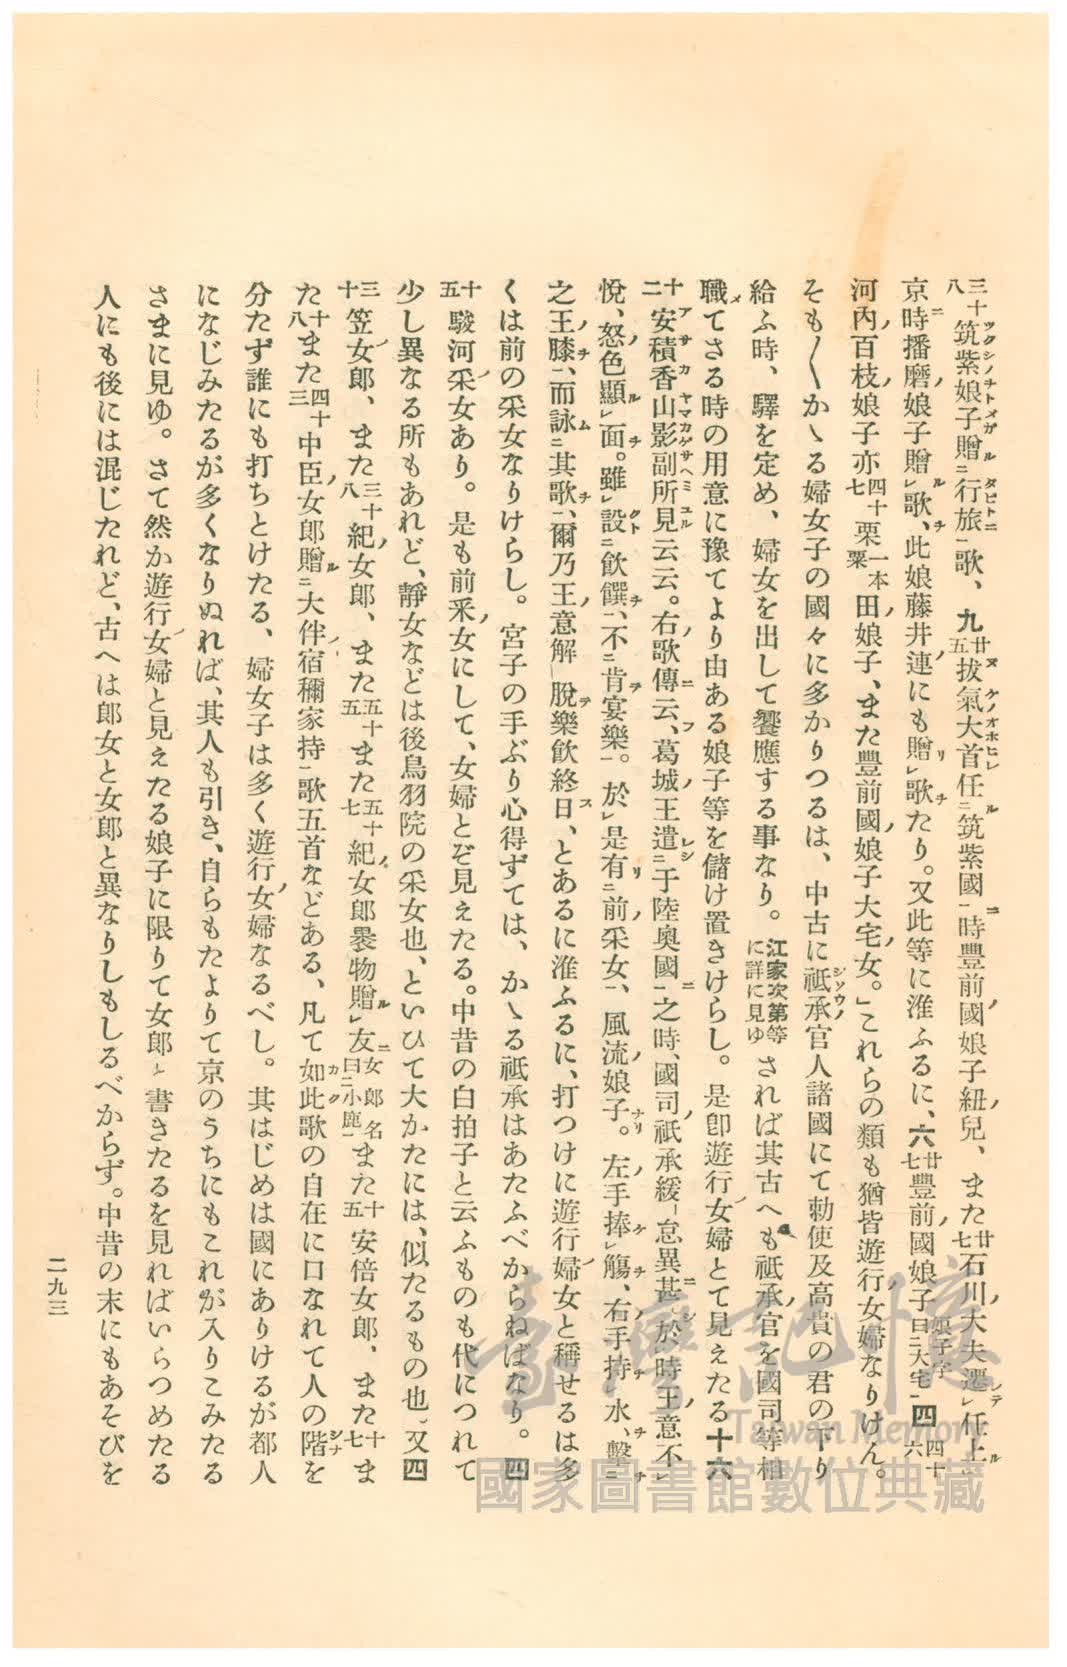 三十八筑紫娘子贈行旅歌、九廿五拔氣大首任筑紫國時豐前國娘子紐兒、また廿七石川大夫遷任上
京時播磨娘子贈歌、此娘藤井連にも贈歌たり。又此等に淮ふるに、六廿七豐前國娘子娘子字曰大宅四四十六
河內百枝娘子亦四十七栗一本粟田娘子、また豐前國娘子大宅女。」これらの類も猶皆遊行女婦なりけん。
そも〳〵かゝる婦女子の國々に多かりつるは、中古に祗承官人諸國にて勅使及高貴の君の下り
給ふ時、驛を定め、婦女を出して饗應する事なり。江家次第等に詳に見ゆされば其古へも祗承官を國司等相
職てさる時の用意に豫てより由ある娘子等を儲け置きけらし。是卽遊行女婦とて見えたる十六
十二安積香山影副所見云云。右歌傳云、葛城王遣于陸奧國之時、國司祗承緩怠異甚、於時王意不
悅、怒色顯面。雖設飮饌、不肯宴樂。於是有前采女、風流娘子。左手捧觴、右手持水、擊
之王膝、而詠其歌、爾乃王意解脫樂飮終日、とあるに淮ふるに、打つけに遊行婦女と稱せるは多
くは前の采女なりけらし。宮子の手ぶり心得ずては、かゝる祗承はあたふべからねばなり。四
十五駿河采女あり。是も前采女にして、女婦とぞ見えたる。中昔の白拍子と云ふものも代につれて
少し異なる所もあれど、靜女などは後鳥羽院の采女也、といひて大かたには、似たるもの也、又四
三十笠女郎、また三十八紀女郎、また五十五また五十七紀女郎褁物贈友女郎名曰小鹿また十五安倍女郎、また十七ま
た十八また四十三中臣女郎贈大伴宿禰家持歌五首などある、凡て如此歌の自在に口なれて人の階を
分たず誰にも打ちとけたる、婦女子は多く遊行女婦なるべし。其はじめは國にありけるが都人
になじみたるが多くなりぬれば、其人も引き、自らもたよりて京のうちにもこれが入りこみたる
さまに見ゆ。さて然か遊行女婦と見えたる娘子に限りて女郎と書きたるを見ればいらつめたる
人にも後には混じたれど、古へは郎女と女郎と異なりしもしるべからず。中昔の末にもあそびを
二九三
臺灣記憶
Taiwan Memory
國家圖書館數位典藏